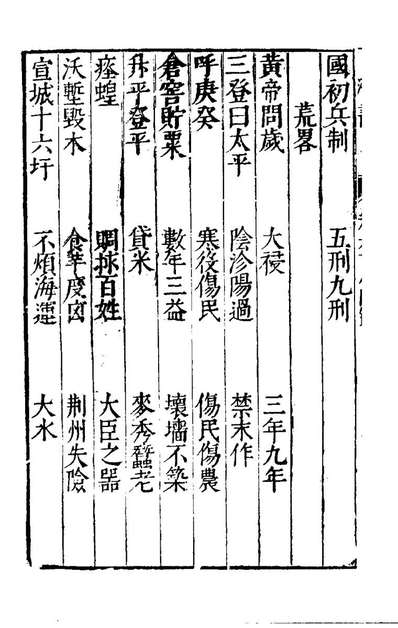 國初兵制　五刑九刑
荒畧
黄帝問歲　大祲　三年九年
三登曰太平　陰沴陽過　禁末作
呼庚癸　寒役傷民　傷民傷農
倉窖貯粟　數年三益　壞墻不築
升平登平　貸米　麥秀蠶老
瘞蝗　賙救百姓　大臣之器
沃塹毀木　倉華度囟　荆州失險
宣城十六圩　不煩海運　大水